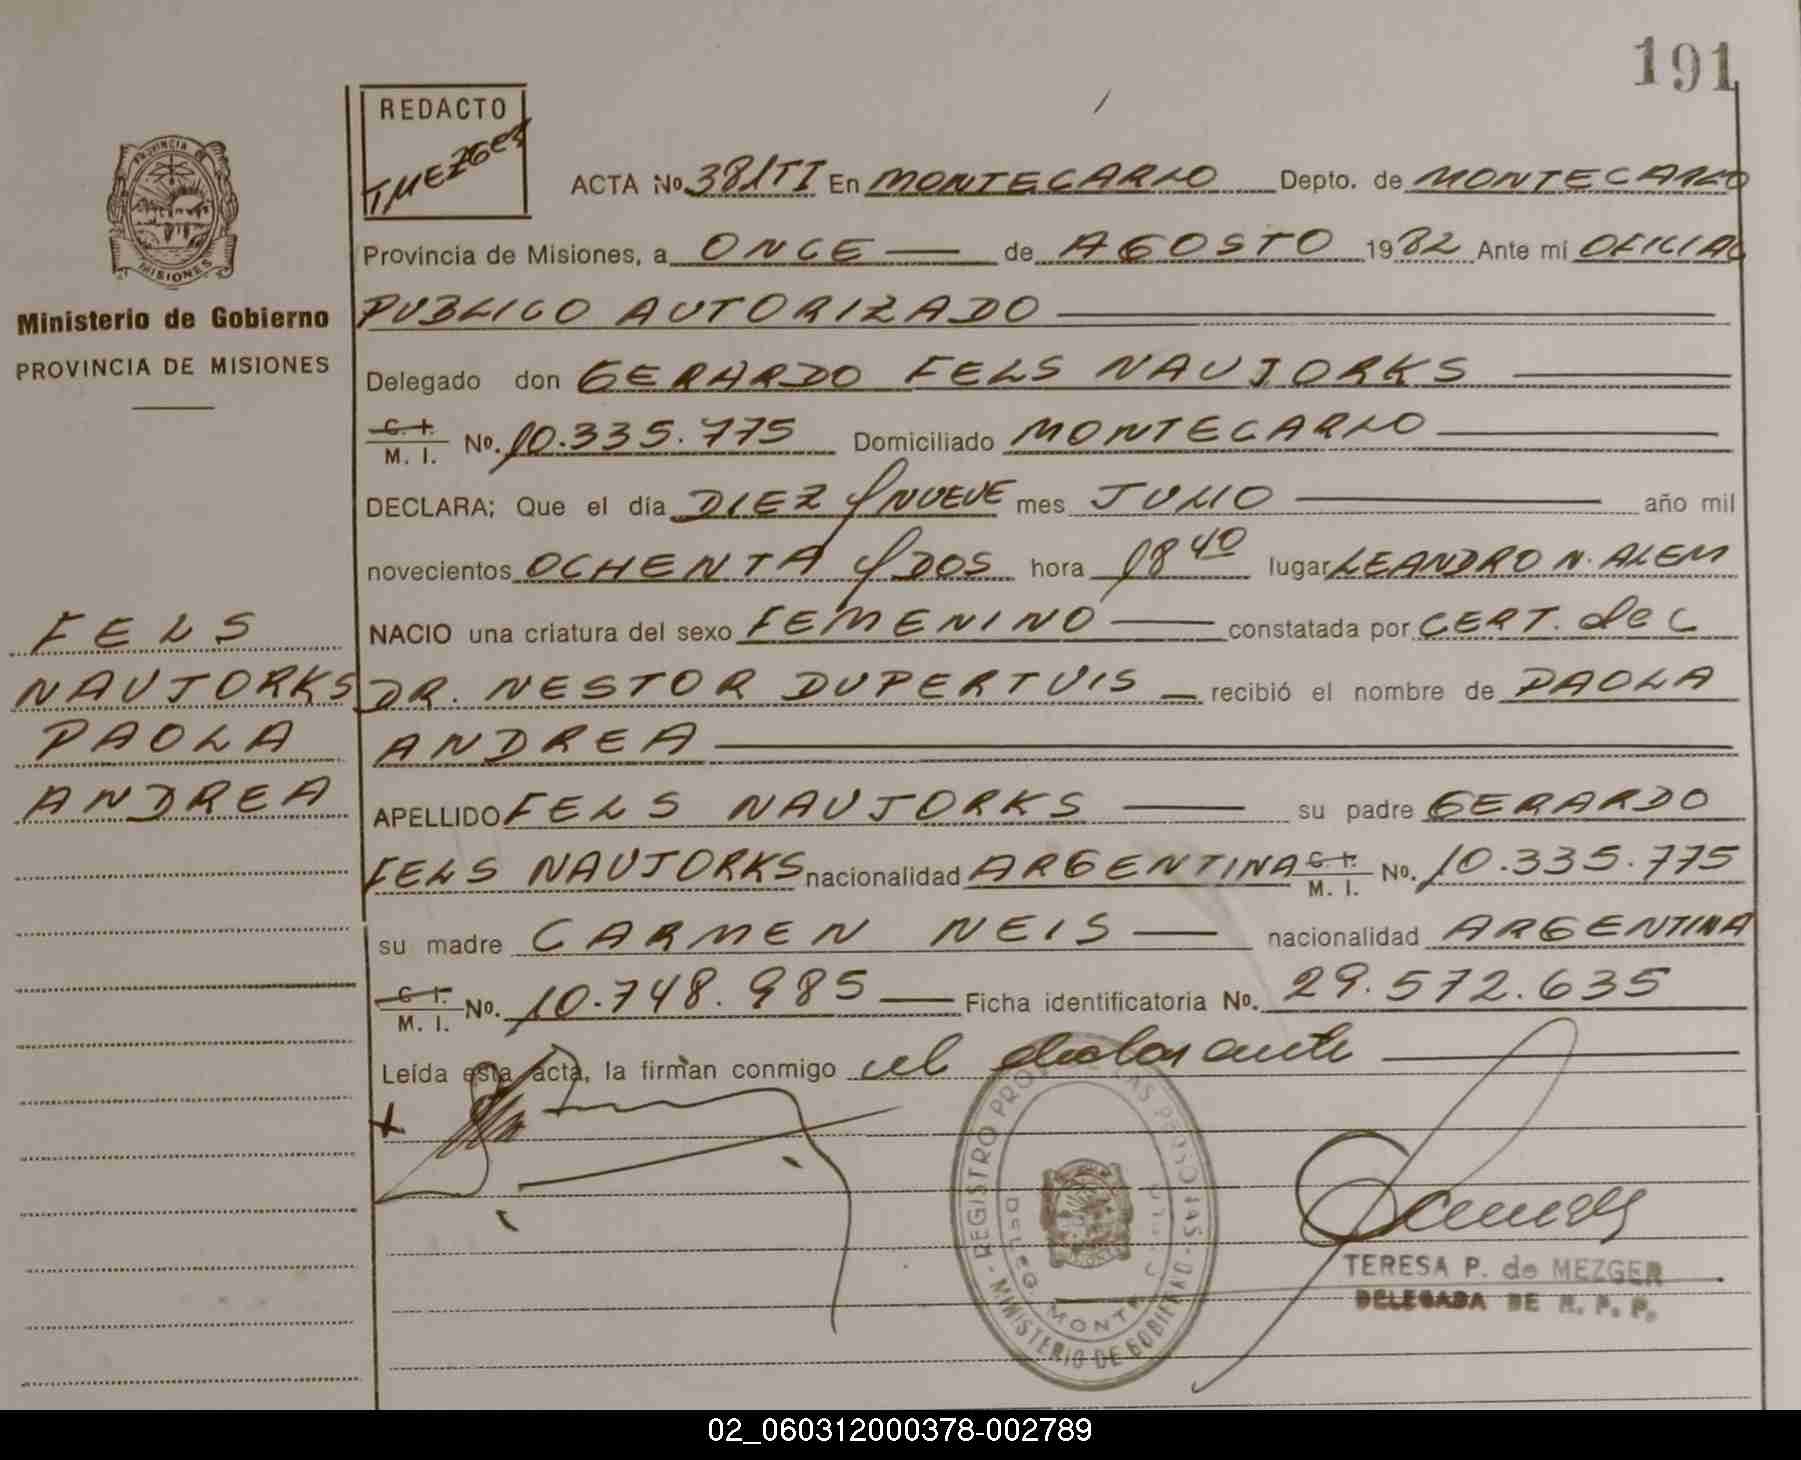 191
REDACTO
TMEZGER
ACTA Nº 381TI En MONTECARLO Depto. de MONTECARLO
Provincia de Misiones, a ONCE — de AGOSTO 1982 Ante mi OFICIAL
PUBLICO AUTORIZADO —
Delegado don GERARDO FELS NAUJORKS —
C. I. M. I. Nº. 10.335.775 Domiciliado MONTECARLO —
DECLARA; Que el día DIEZ y NUEVE mes JULIO — año mil
novecientos OCHENTA y DOS hora 18 40 lugar LEANDRO N. ALEM
NACIO una criatura del sexo FEMENINO — constatada por CERT. de C
DR. NESTOR DUPERTUIS — recibió el nombre de PAOLA
ANDREA —
APELLIDO FELS NAUJORKS — su padre GERARDO
FELS NAUJORKS nacionalidad ARGENTINA C. I. M. I. Nº. 10.335.775
su madre CARMEN NEIS — nacionalidad ARGENTINA
C. I. M. I. Nº. 10.748.985 — Ficha identificatoria Nº. 29.572.635
Leída esta acta, la firman conmigo el declarante —
PROVINCIA DE
MISIONES
Ministerio de Gobierno
PROVINCIA DE MISIONES
FELS
NAUJORKS
PAOLA
ANDREA
REGISTRO PROV. DE LAS PERSONAS - MINISTERIO DE GOBIERNO
DELEG. MONTE
TERESA P. de MEZGER
DELEGADA DE R. P. P.
02_060312000378-002789